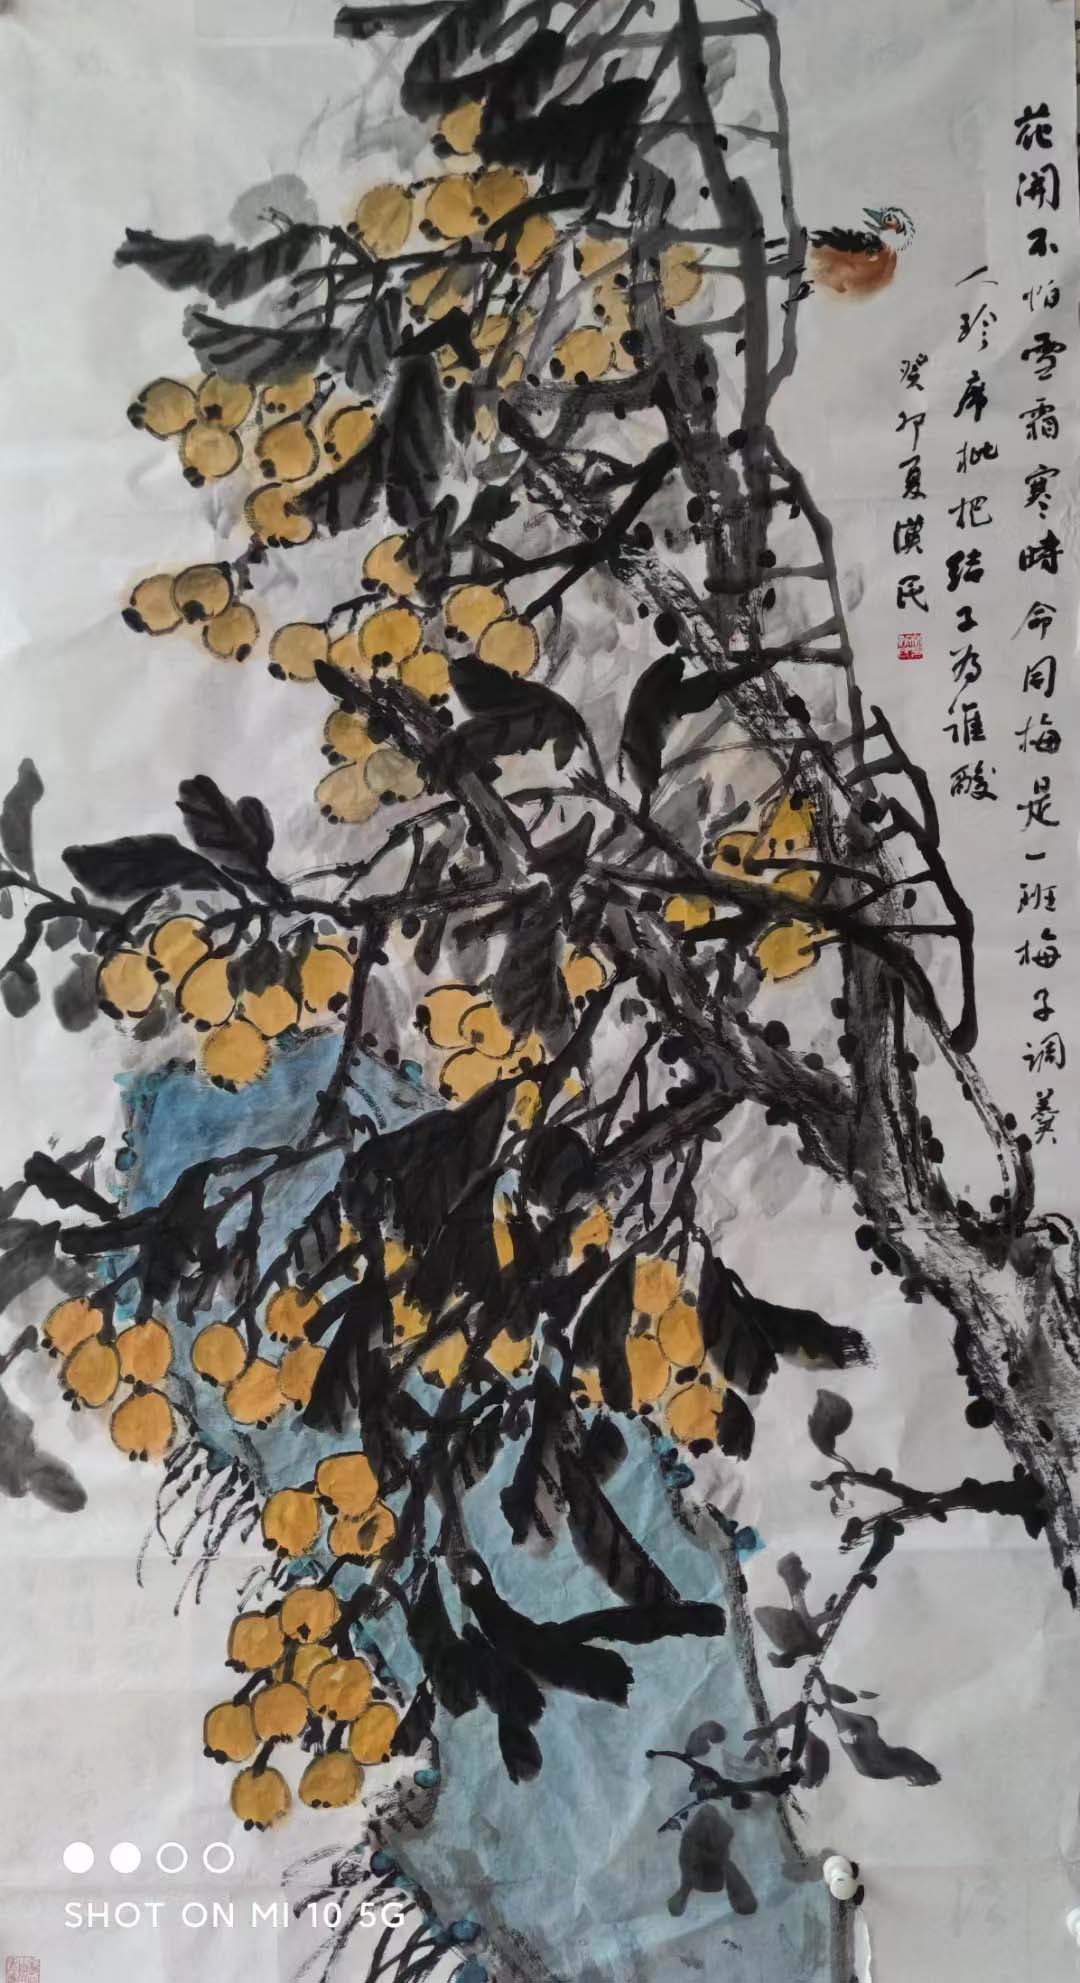 花開不怕雪霜寒時命同梅是一班梅子调羹
人珍席枇杷结子为谁酸
癸卯夏漢民
SHOT ON MI 10 5G